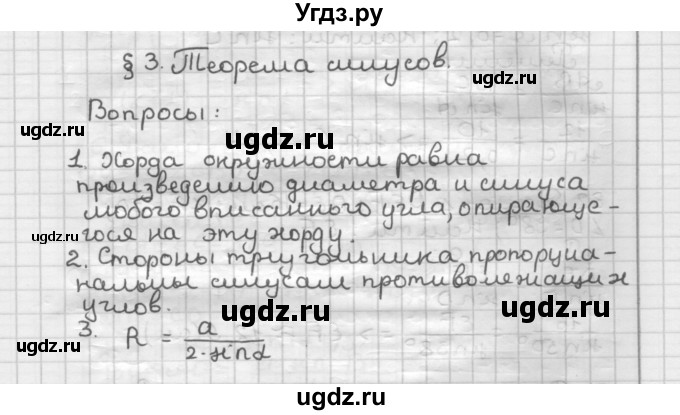 Угдз.ру
§ 3. Теорема синусов.
ugdz.ru
Вопросы:
ugdz.ru
ugdz.ru
1. Хорда окружности равна
ugdz.ru
произведению диаметра и синуса
любого вписанного угла, опирающе-
ugdz.ru
ugdz.ru
гося на эту хорду.
2. Стороны треугольника пропорцио-
нальны синусам противолежащих
углов.
ugdz.ru
ugdz.ru
3. R = a / 2·sinα
ugdz.ru
ugdz.ru